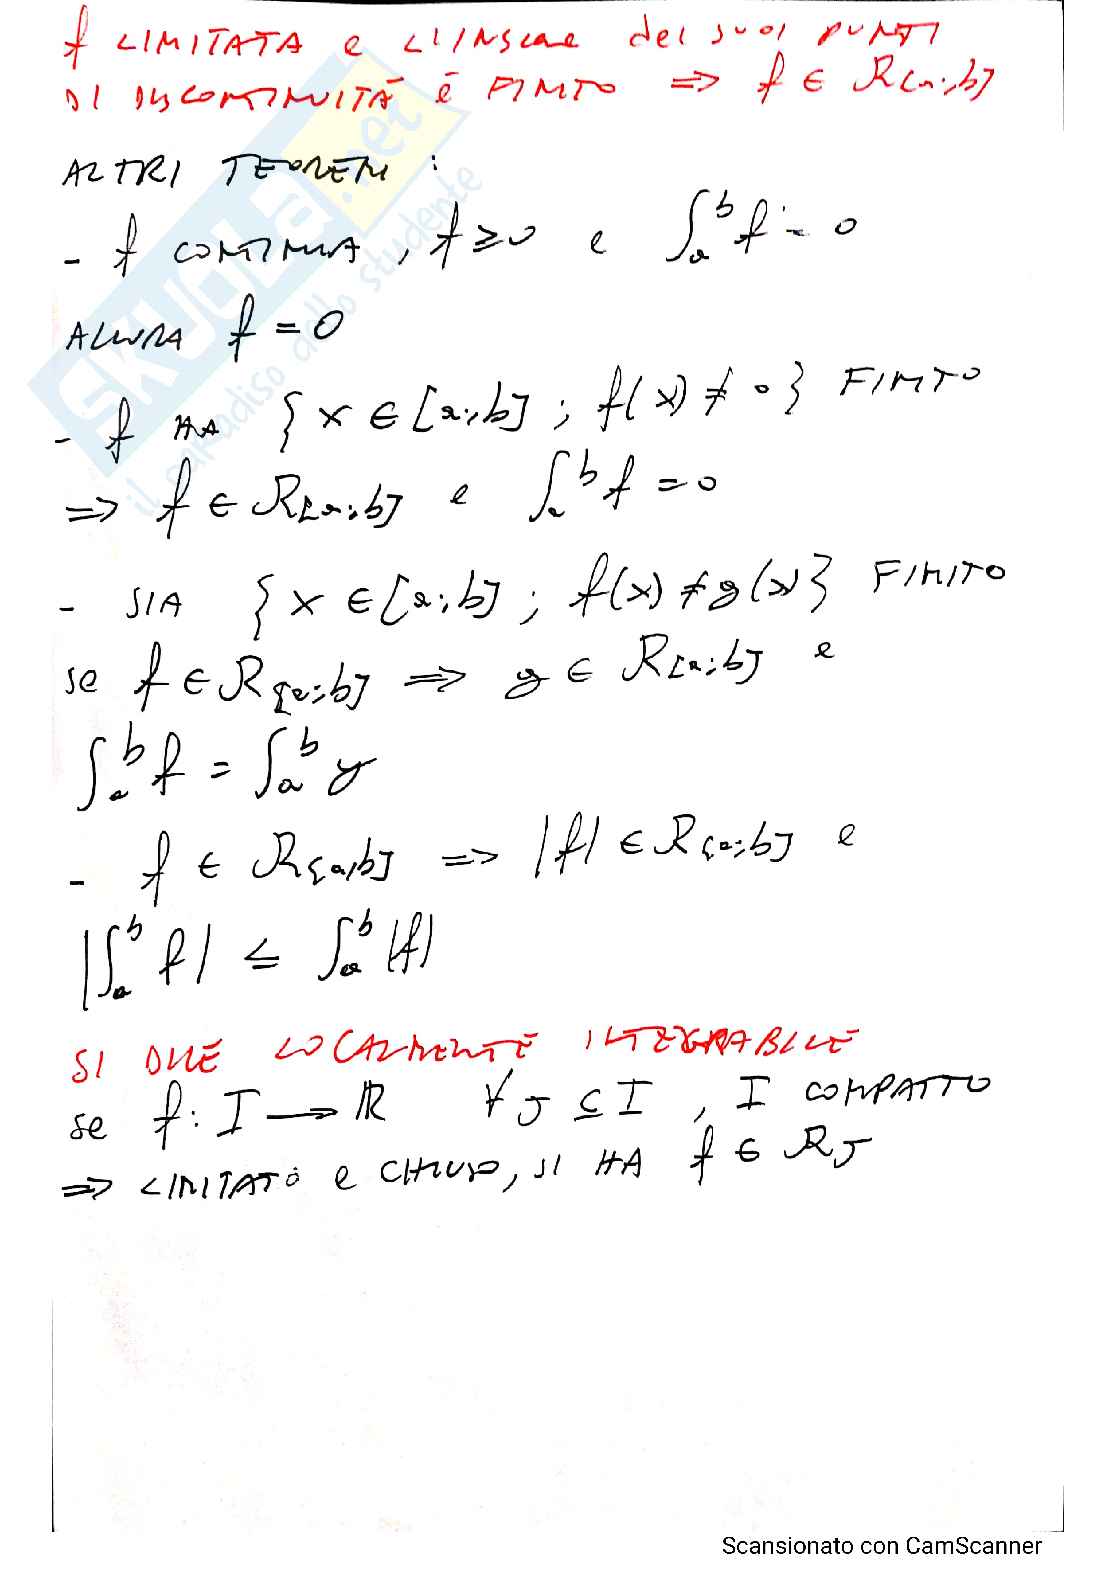 f LIMITATA e L'INSIEME dei suoi PUNTI
DI DISCONTINUITÀ È FINITO => f ∈ R[a;b]
ALTRI TEOREMI :
- f CONTINUA, f ≥ 0 e ∫ₐᵇ f = 0
ALLORA f = 0
- f HA {x ∈ [a;b] ; f(x) ≠ 0} FINITO
=> f ∈ R[a;b] e ∫ₐᵇ f = 0
- SIA {x ∈ [a;b] ; f(x) ≠ g(x)} FINITO
se f ∈ R[a;b] => g ∈ R[a;b] e
∫ₐᵇ f = ∫ₐᵇ g
- f ∈ R[a,b] => |f| ∈ R[a;b] e
|∫ₐᵇ f| ≤ ∫ₐᵇ |f|
SI DICE LOCALMENTE INTEGRABILE
se f: I → ℝ ∀ J ⊆ I, I COMPATTO
=> LIMITATO e CHIUSO, SI HA f ∈ R J
SKUOLA.net
il paradiso dello studente
Scansionato con CamScanner